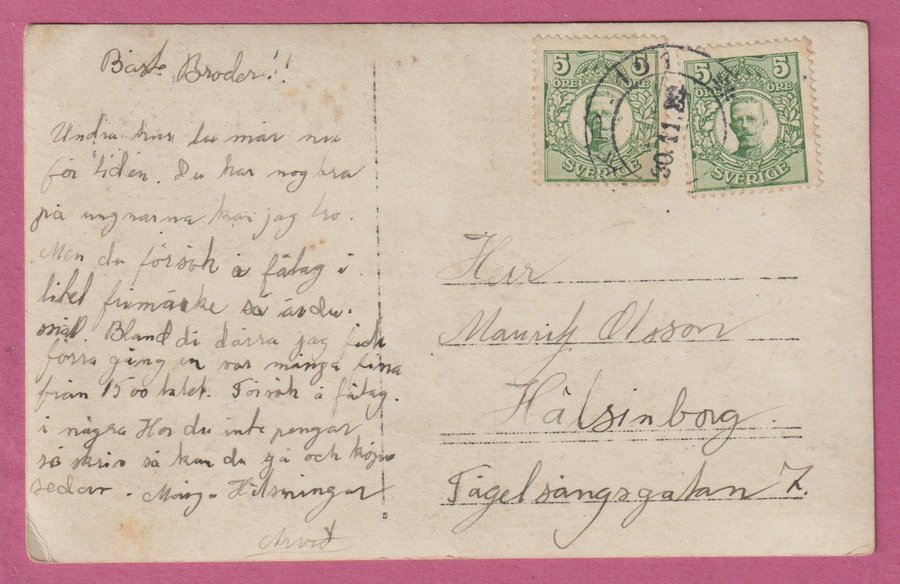 Bäste Broder!!
Undra hur du mår nu
för tiden. Du har nog bra
på ungnarna kan jag tro.
Men du försök å få tag i
litet frimärke så är du
snäl Bland di därra jag fick
förra gång en var många
från 1500 talet. Försök å få tag.
i några Har du inte pengar
så skriv så kan du gå och köpa
sedan. Många Hälsningar
Arvid
5 5
ÖRE ÖRE
SVERIGE
5 5
ÖRE ÖRE
SVERIGE
30.11.
Herr
Mauritz Olsson
Hälsinborg.
Fågelsångsgatan 7.